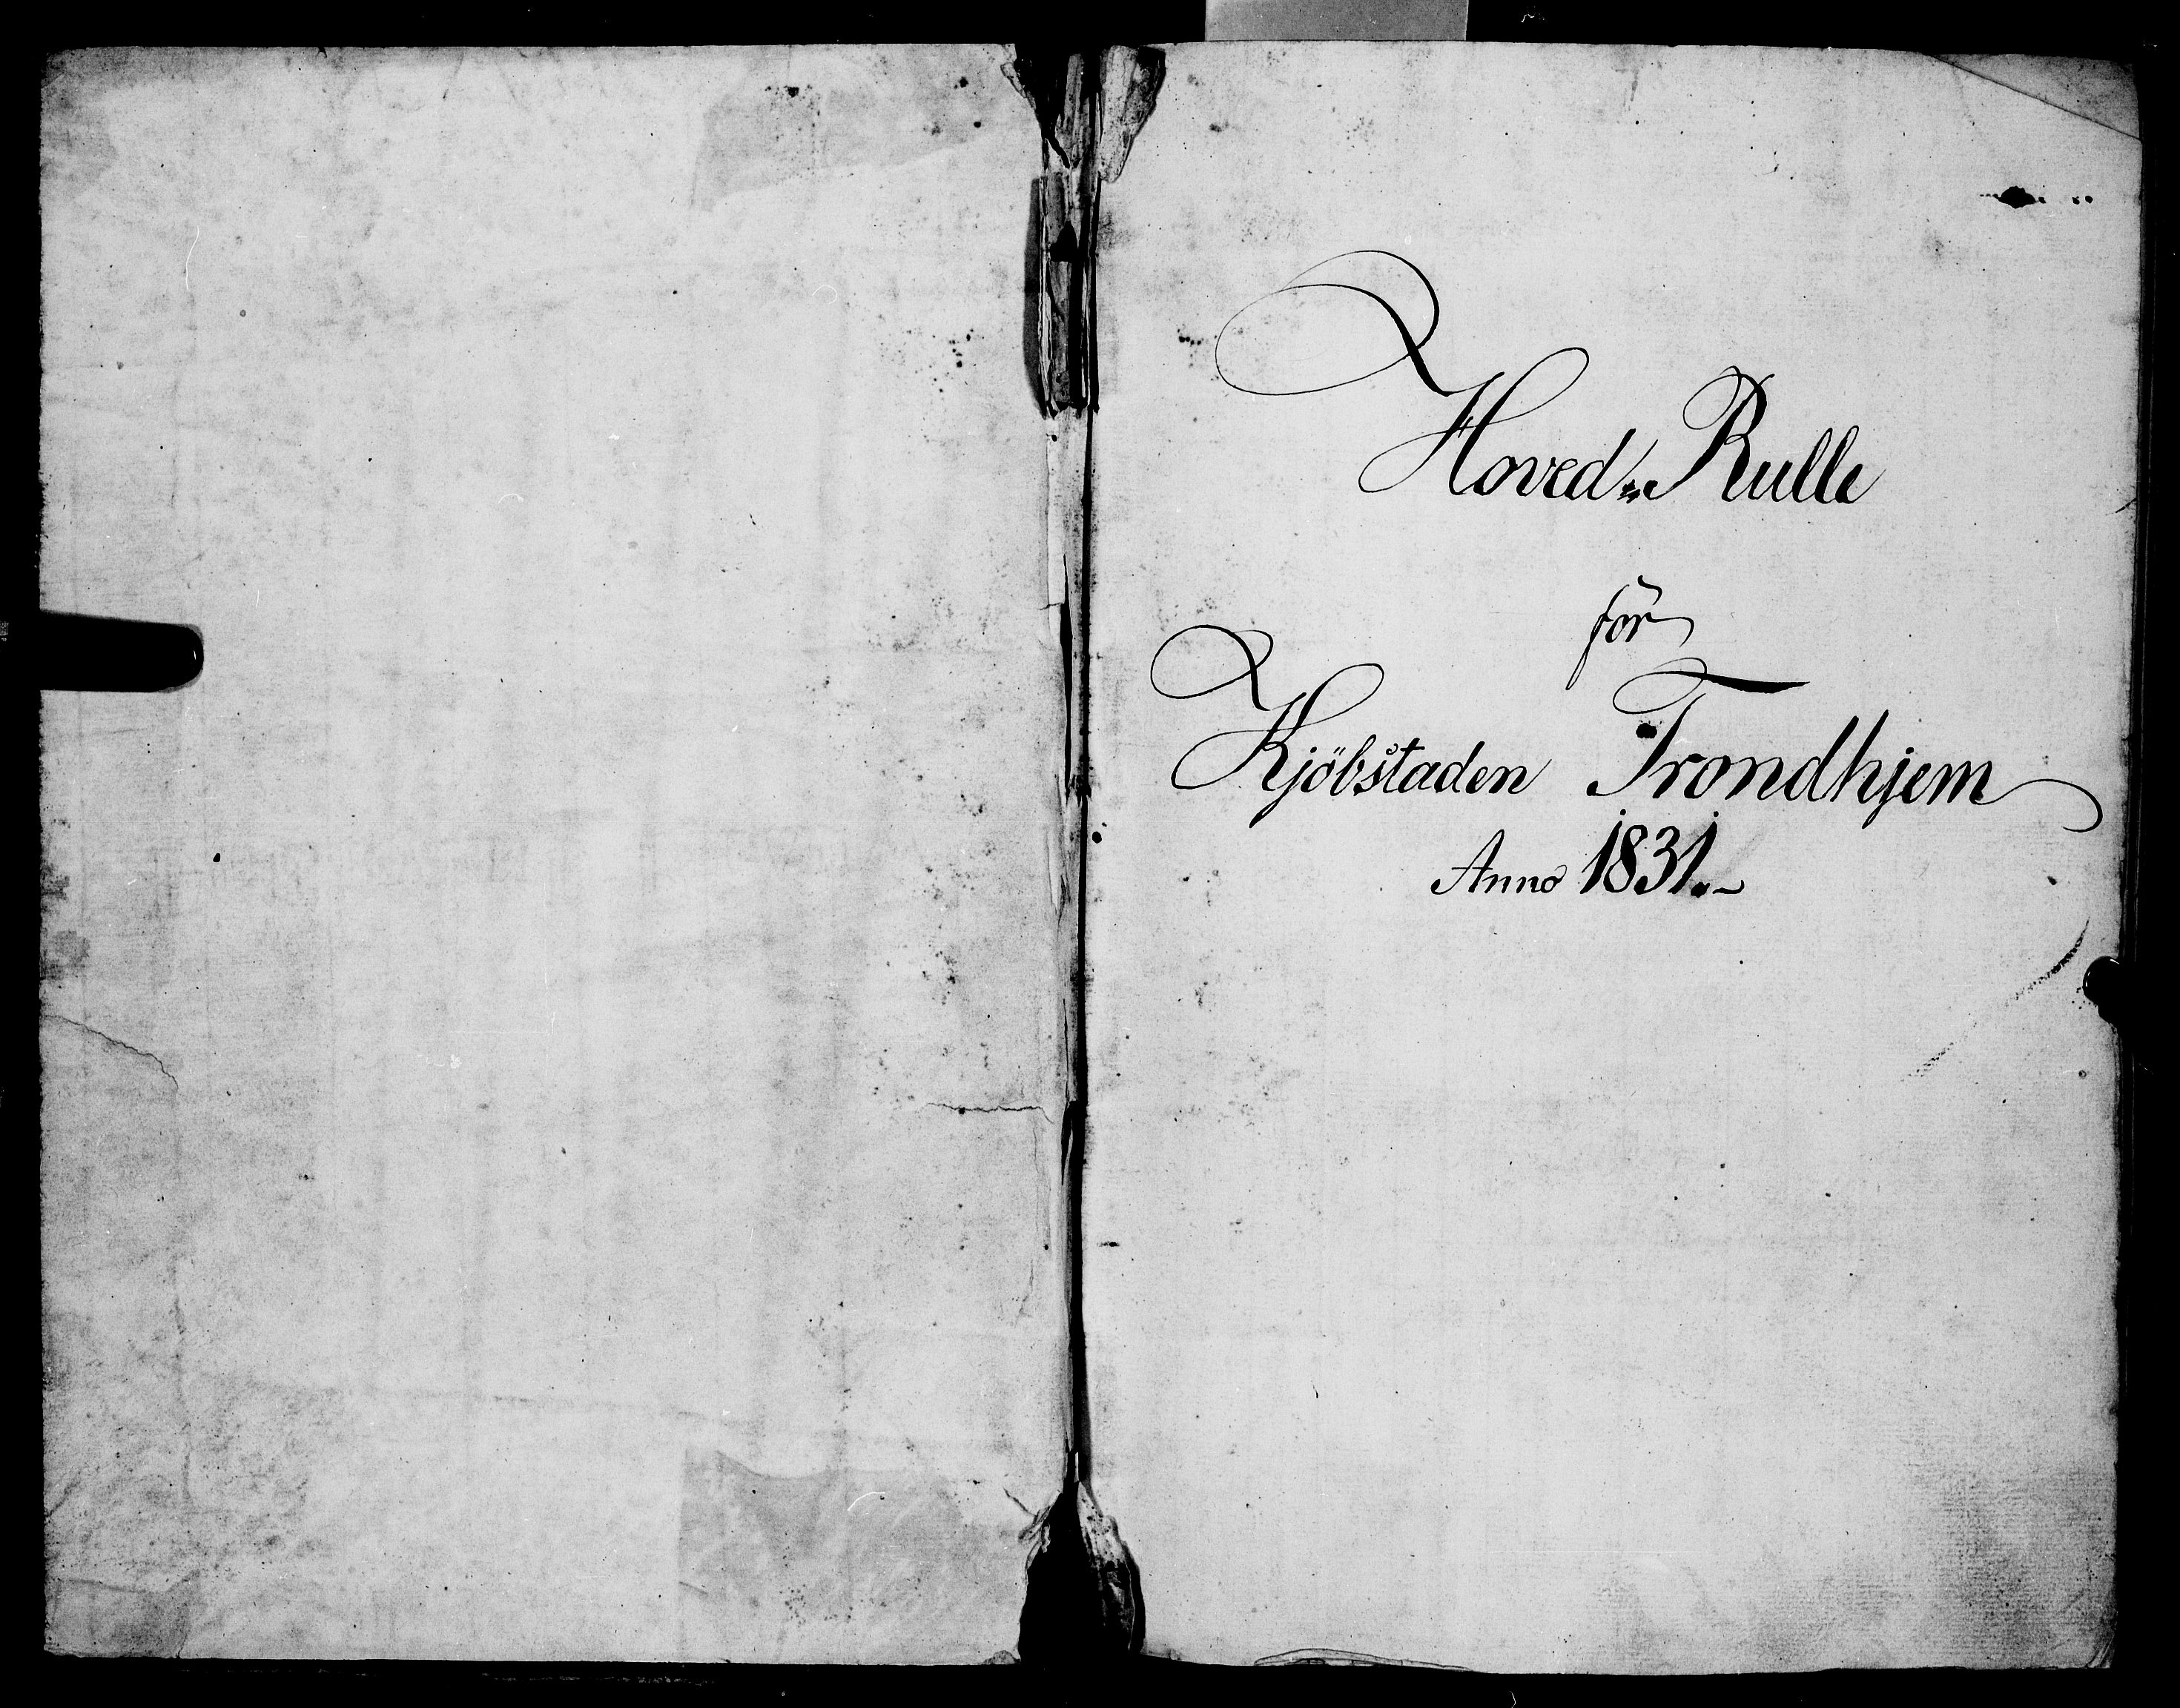 Hoved=Rulle
for
Kjöbstaden Trondhjem
Anno 1831.